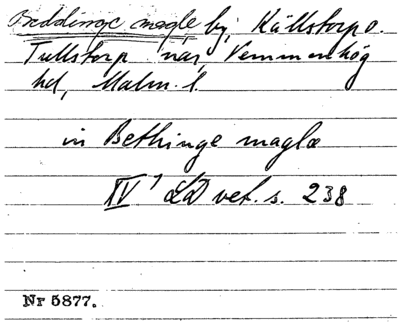 Beddinge magle by, Källstorp o.
Tullstorp snr, Vemmenhög
hd, Malm. l.
in Bethinge maglæ
IV¹ LD vet. s. 238
Nr 5877.